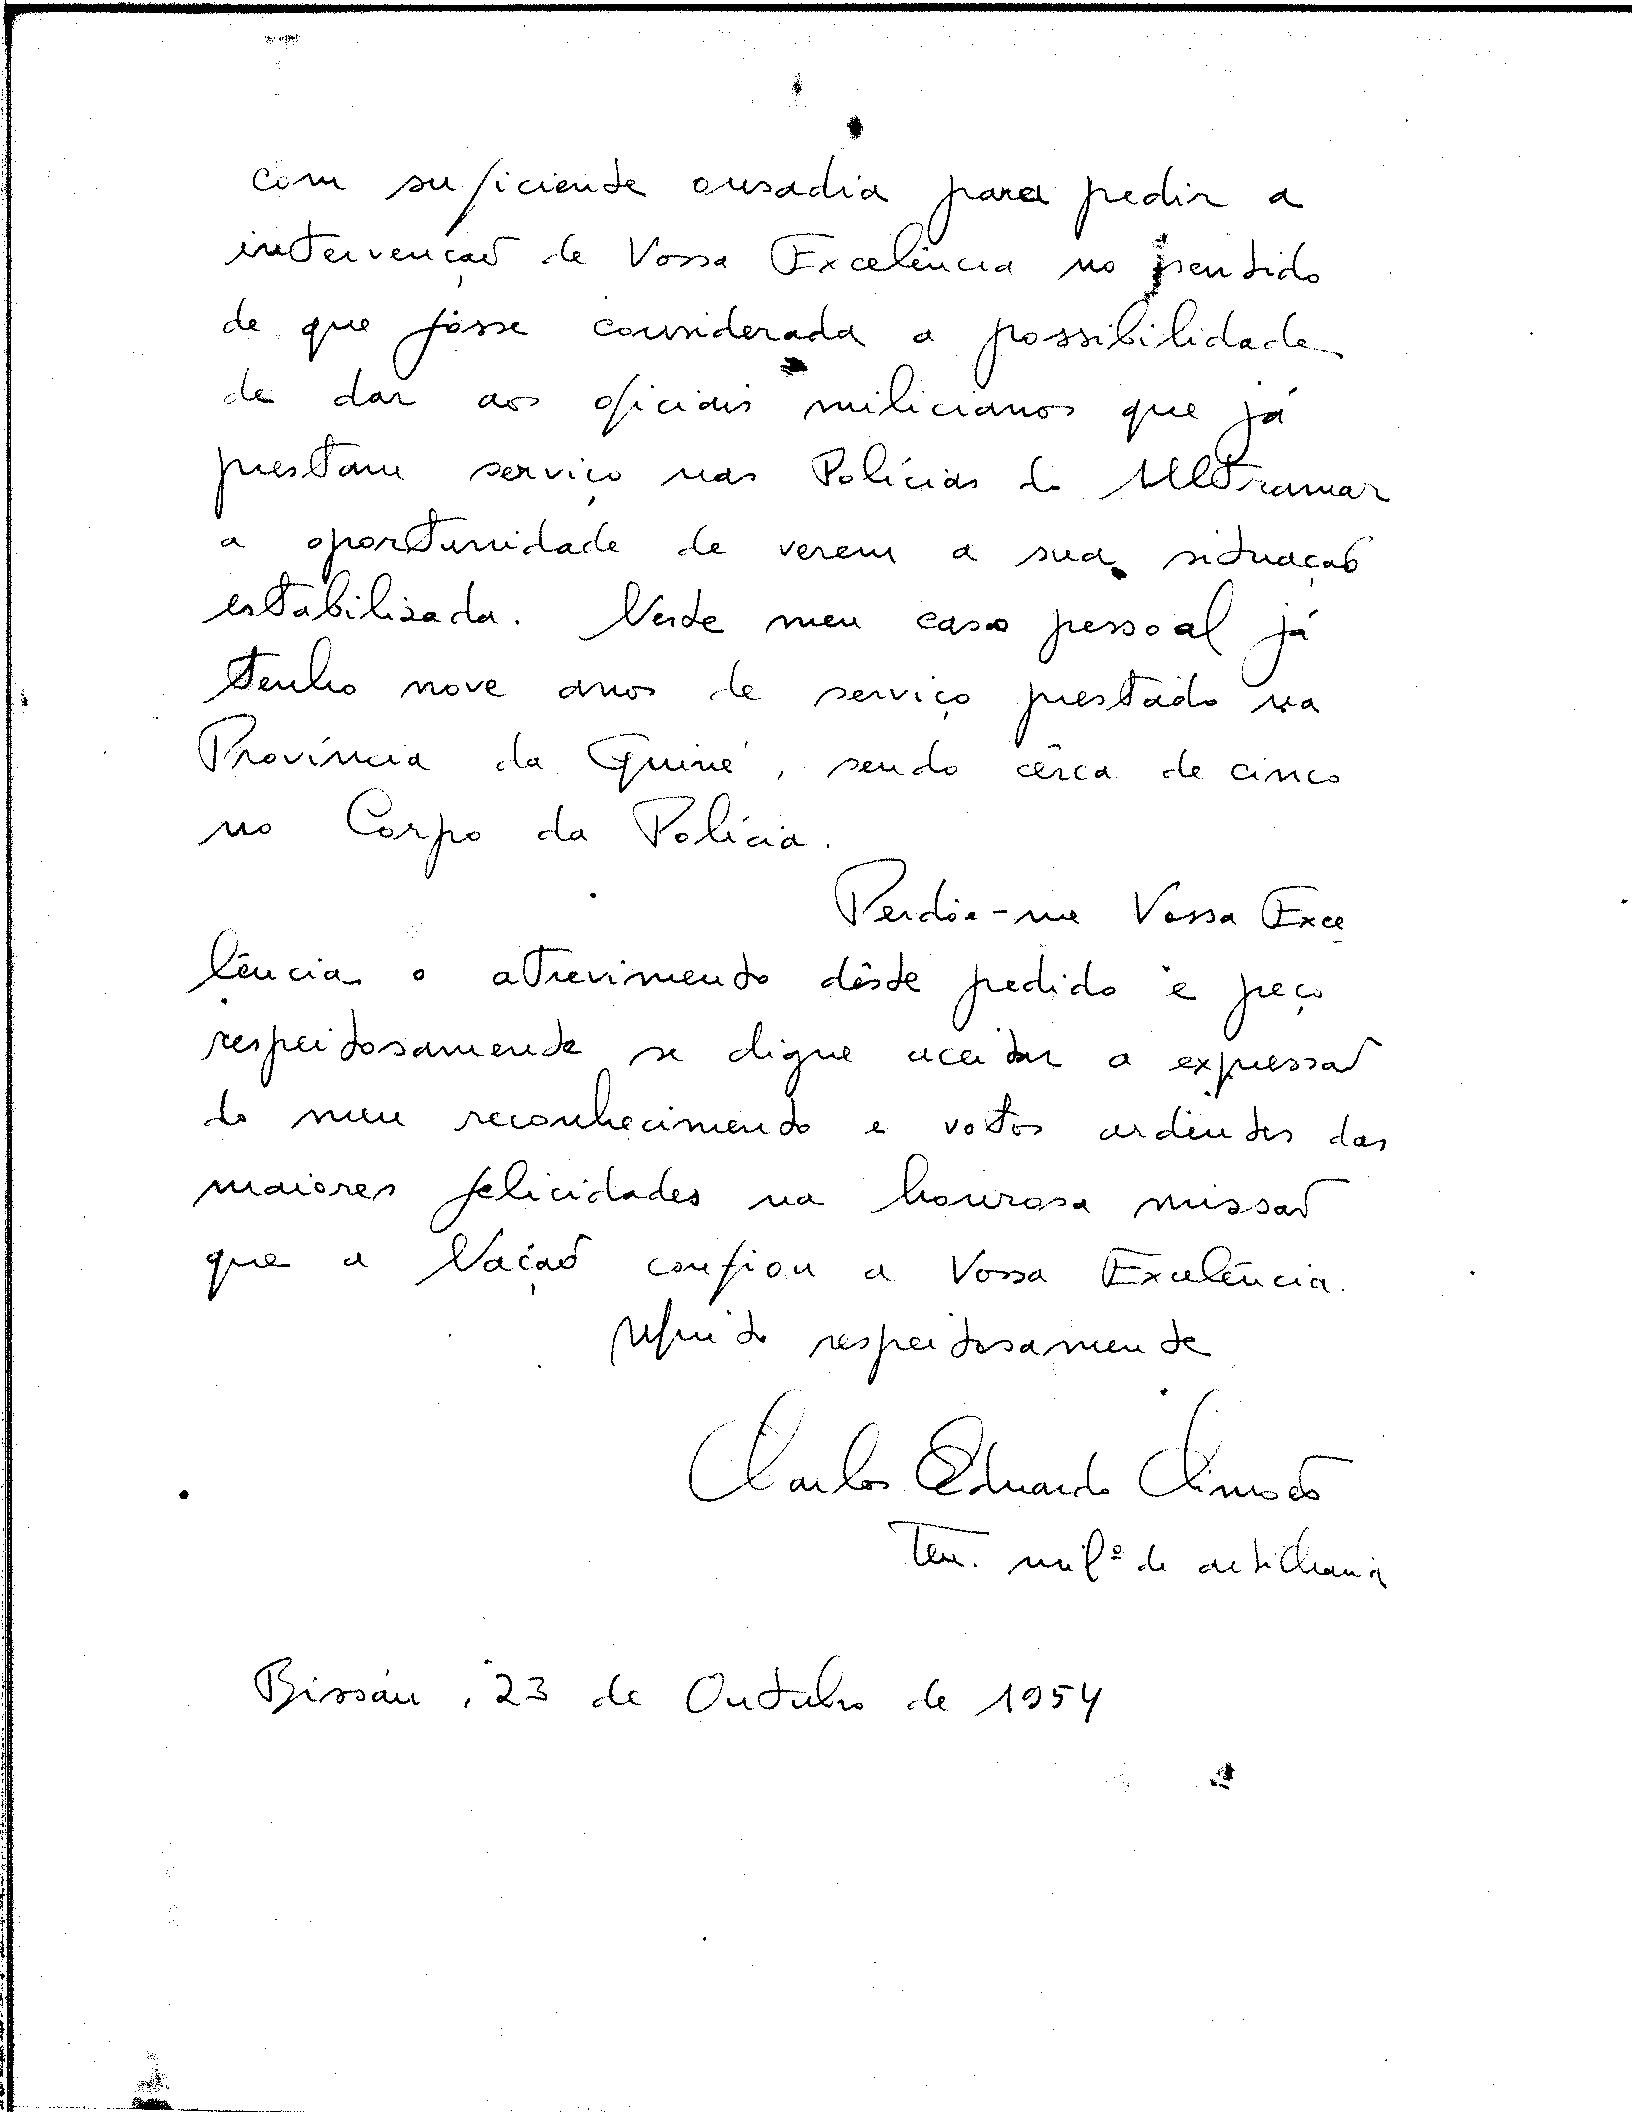 com suficiente ousadia para pedir a
intervenção de Vossa Excelência no sentido
de que fôsse considerada a possibilidade
de dar aos oficiais milicianos que já
prestam serviço nas Polícias do Ultramar
a oportunidade de verem a sua situação
estabilizada. Neste meu caso pessoal já
tenho nove anos de serviço prestado na
Província da Guiné, sendo cêrca de cinco
no Corpo da Polícia.
Perdôe-me Vossa Exce
lência o atrevimento dêste pedido e peço
respeitosamente se digne aceitar a expressão
do meu reconhecimento e votos ardentes das
maiores felicidades na honrosa missão
que a Nação confiou a Vossa Excelência.
Muito respeitosamente
Carlos Eduardo
Ten. milº de artilharia
Bissáu, 23 de Outubro de 1954